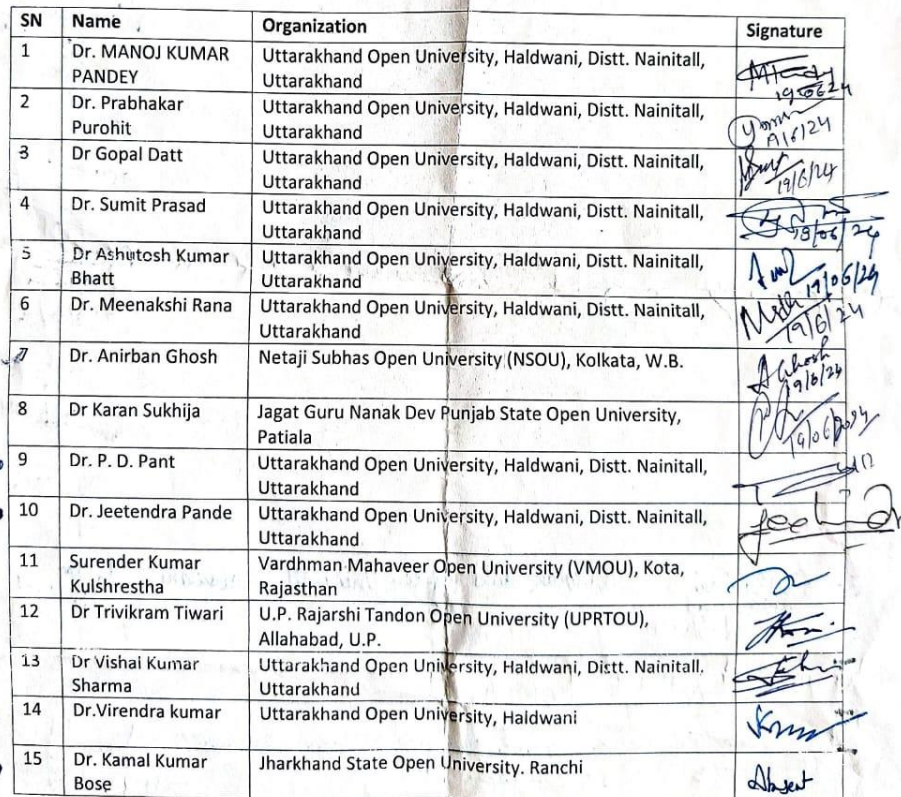 SN Name Organization Signature
1 Dr. MANOJ KUMAR PANDEY Uttarakhand Open University, Haldwani, Distt. Nainitall, Uttarakhand 19/06/24
2 Dr. Prabhakar Purohit Uttarakhand Open University, Haldwani, Distt. Nainitall, Uttarakhand
3 Dr Gopal Datt Uttarakhand Open University, Haldwani, Distt. Nainitall, Uttarakhand 19/6/24
4 Dr. Sumit Prasad Uttarakhand Open University, Haldwani, Distt. Nainitall, Uttarakhand
5 Dr Ashutosh Kumar Bhatt Uttarakhand Open University, Haldwani, Distt. Nainitall, Uttarakhand 19/06/24
6 Dr. Meenakshi Rana Uttarakhand Open University, Haldwani, Distt. Nainitall, Uttarakhand 19/6/24
7 Dr. Anirban Ghosh Netaji Subhas Open University (NSOU), Kolkata, W.B. AGhosh 19/6/24
8 Dr Karan Sukhija Jagat Guru Nanak Dev Punjab State Open University, Patiala 19/06/2024
9 Dr. P. D. Pant Uttarakhand Open University, Haldwani, Distt. Nainitall, Uttarakhand
10 Dr. Jeetendra Pande Uttarakhand Open University, Haldwani, Distt. Nainitall, Uttarakhand
11 Surender Kumar Kulshrestha Vardhman Mahaveer Open University (VMOU), Kota, Rajasthan
12 Dr Trivikram Tiwari U.P. Rajarshi Tandon Open University (UPRTOU), Allahabad, U.P.
13 Dr Vishal Kumar Sharma Uttarakhand Open University, Haldwani, Distt. Nainitall. Uttarakhand
14 Dr.Virendra kumar Uttarakhand Open University, Haldwani
15 Dr. Kamal Kumar Bose Jharkhand State Open University. Ranchi Absent